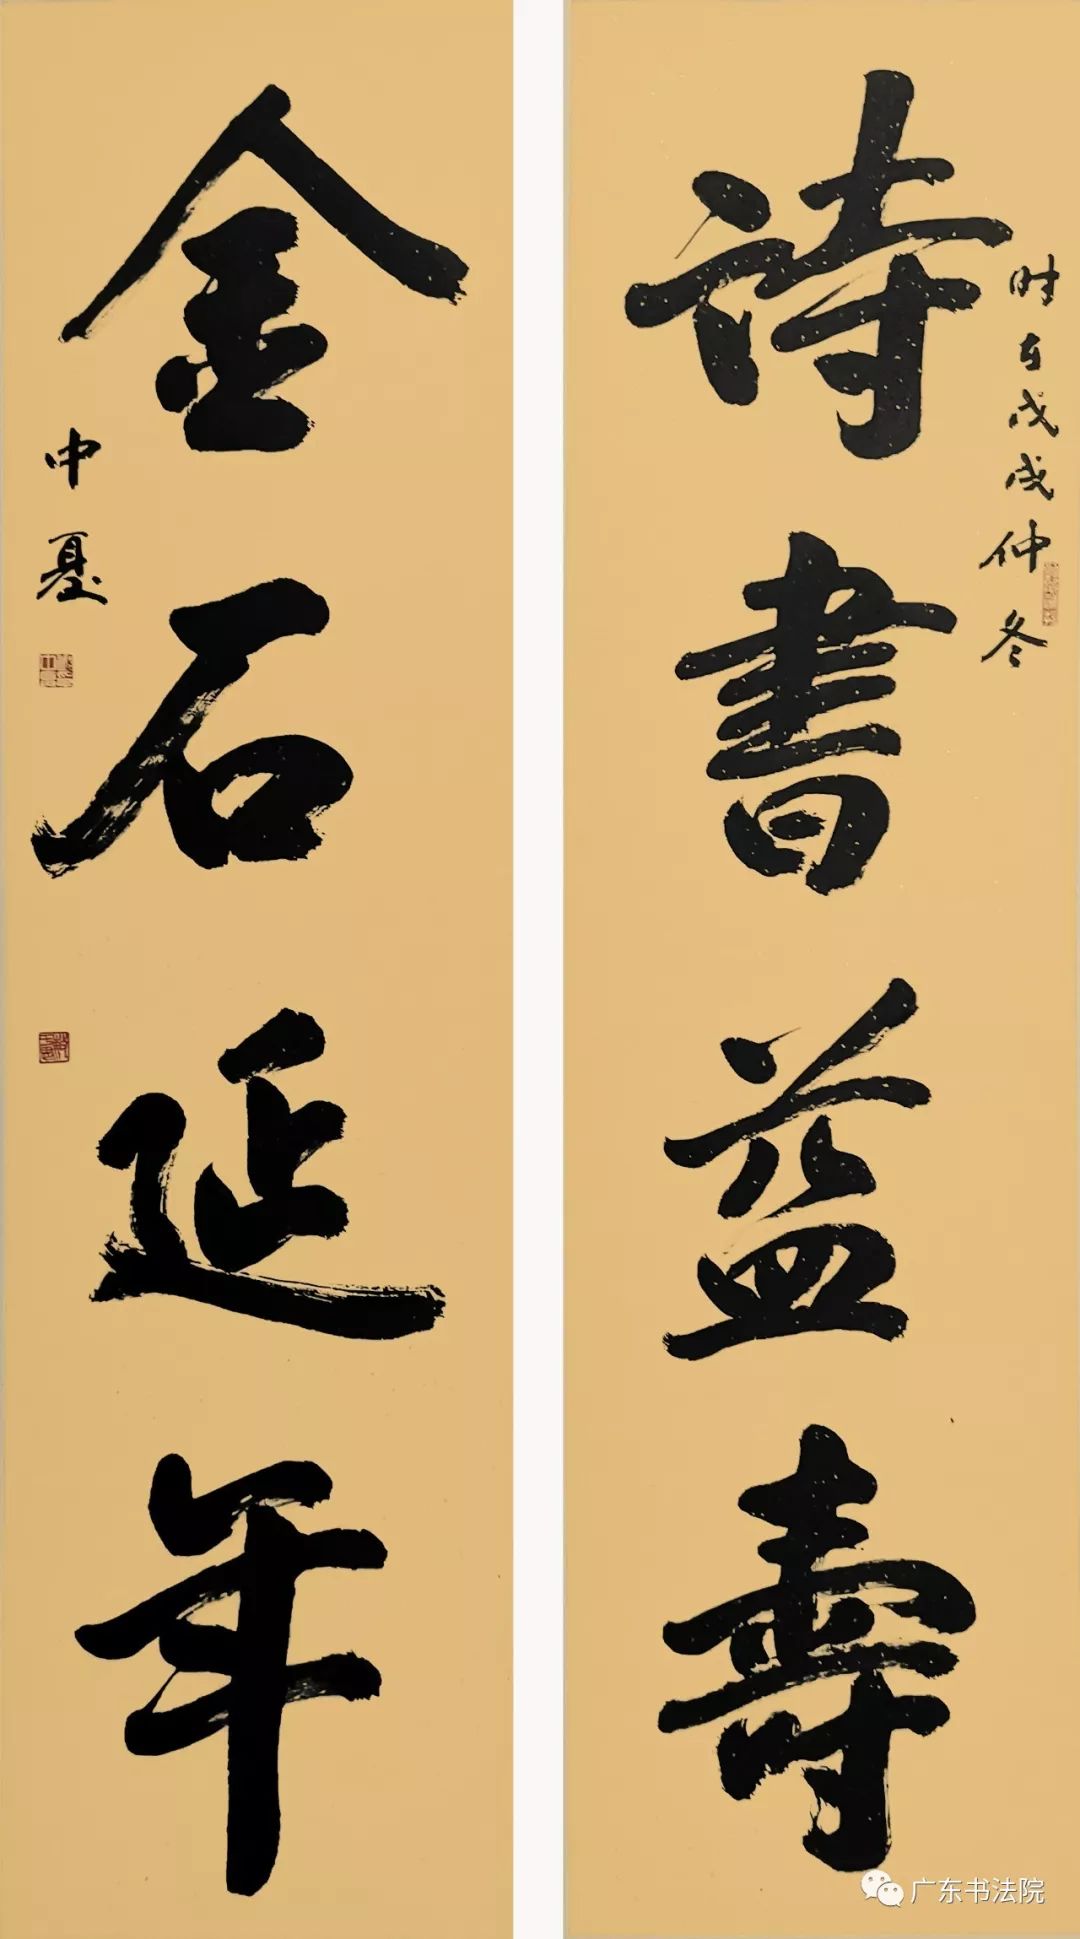 詩書益壽
时在戊戌仲冬
金石延年
中戛
广东书法院